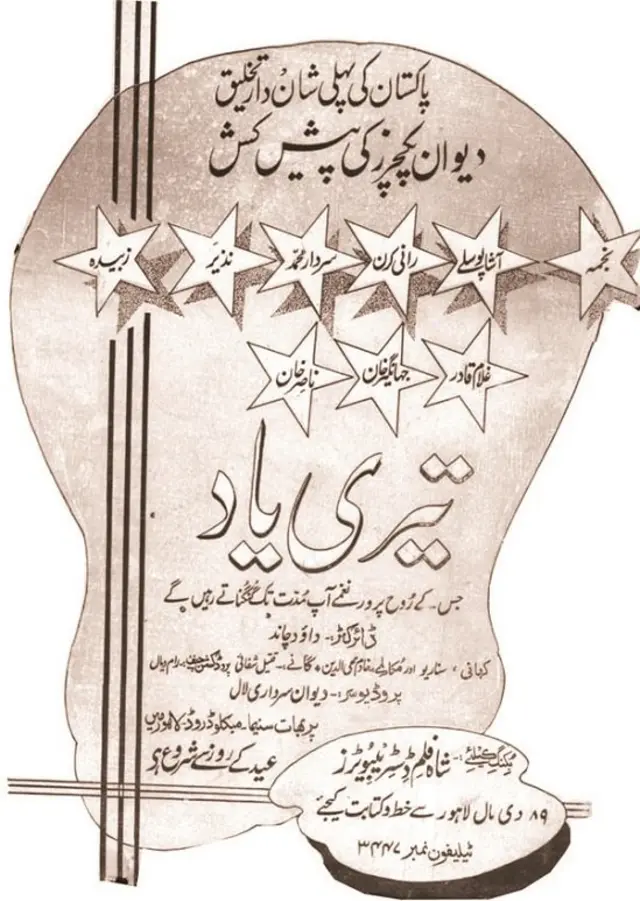 پاکستان کی پہلی شان دار تخلیق
دیوان پکچرز کی پیش کش
نجمہ
آشا پوسلے
رانی کرن
سردار محمد
نذیر
زبیدہ
غلام قادر
جہانگیر خان
ناصر خان
تیری یاد
جس۔ کے رُوح پرور نغمے آپ مُدّت تک گنگناتے رہیں گے
ڈائرکٹر:۔ داؤد چاند
کہانی، سناریو اور مُکالمے:۔ خادم محی الدین • گانے:۔ قتیل شفائی پروڈکشن چیف:۔ رام دیال
پروڈیوسر:۔ دیوان سرداری لال
پربھات سنیما۔ میکلوڈ روڈ۔ لاہور میں
عید کے روز سے شروع ہے
بُکنگ کیلئے:۔ شاہ فلم ڈسٹریبیوٹرز
۸۹ دی مال لاہور سے خط و کتابت کیجئے
ٹیلیفون نمبر ۳۴۴۷